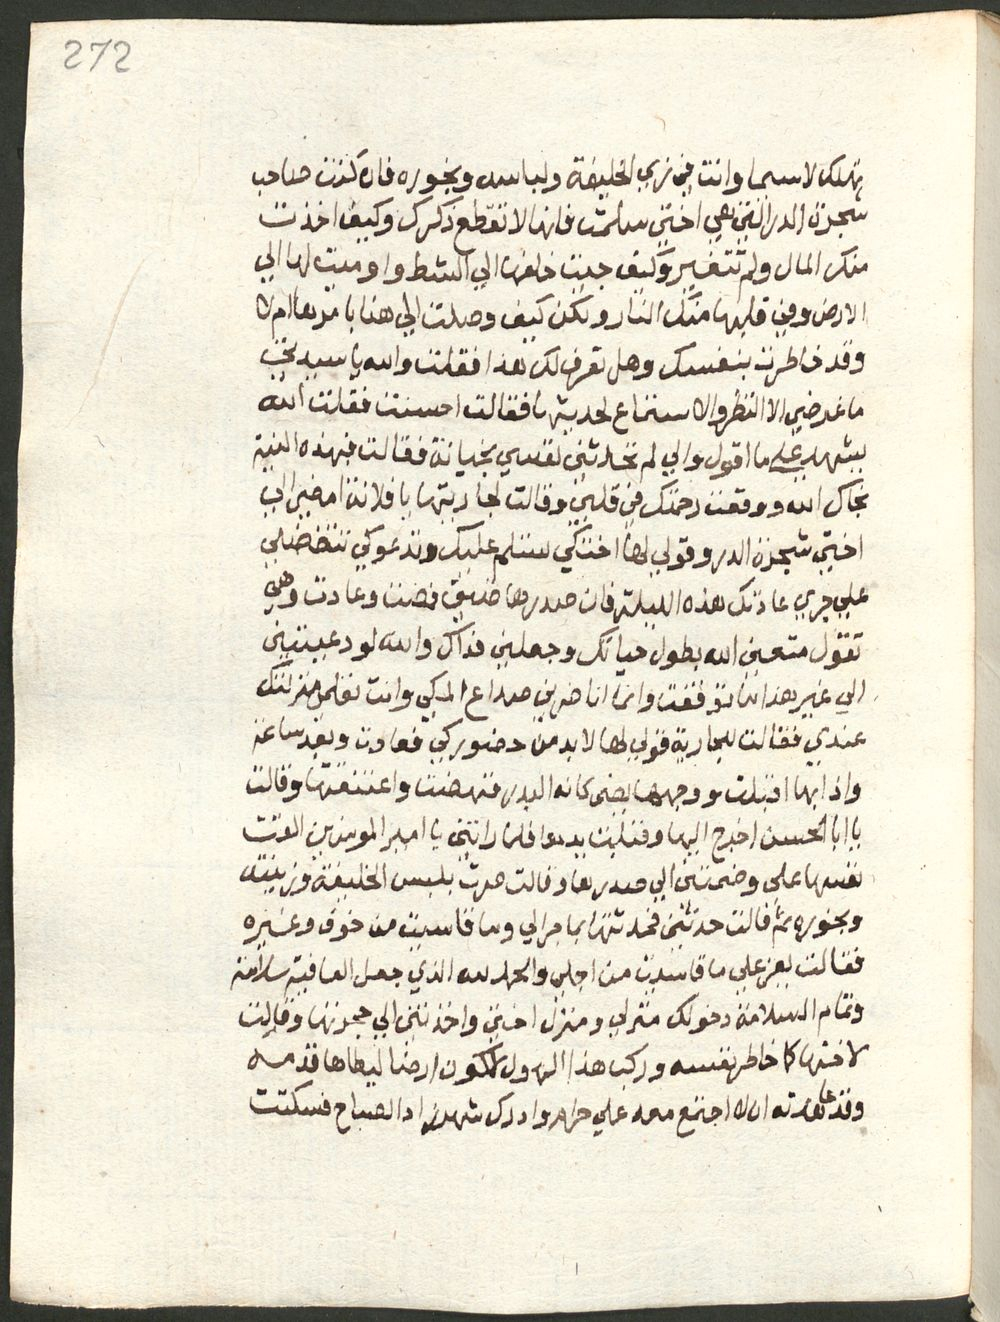 272
تهلك لا سيما وانت في زي الخليفة ولباسه وبخوره فان كنت صاحب
شجرة الدر التي هي اختي سلمت فانها لا تقطع ذكرك وكيف اخذت
منك المال ولم تتغير وكيف جيت خلفها الي الشط واوميت لها الي
الارض وفي قلبها منك النار ولكن كيف وصلت الي هنا بامرها ام لا
وقد خاطرت بنفسك وهل تعرف لك هذا فقلت والله يا سيدتي
ما غرضي الا النظر والاستماع لحديثها فقالت احسنت فقلت الله
يشهد علي ما اقول واني لم تحدثني نفسي بخيانة فقالت فبهذه النية
نجاك الله ووقعت رحمتك في قلبي وقالت لجاريتها يا فلانة امضي الي
اختي شجرة الدر وقولي لها اختكي تسلم عليك وتدعوكي تتفضلي
علي جري عادتك هذه الليلة فان صدرها ضيق فمضت وعادت وهي
تقول متعني الله بطول حياتك وجعلني فداك والله لو دعيتيني
الي غير هذا ما توقفت وانما انا ضرني صداع المكي وانت تعلمي منزلتك
عندي فقالت للجارية قولي لها لا بد من حضوركي فعادت وبعد ساعة
واذا بها اقبلت ووجهها يضي كانه البدر فنهضت واعتنقتها وقالت
يا ابا الحسن اخرج اليها وقبلت يديها فلما راتني يا امير المومنين القت
نفسها علي وضمتني الي صدرها وقالت صرت بلبس الخليفة وزينته
وبخوره ثم قالت حدثني فحدثتها بما جرالي وما قاسيت من خوف وغيره
فقالت يعز علي ما قاسيت من اجلي والحمد لله الذي جعل العاقبة سلامة
وتمام السلامة دخولك منزلي ومنزل اختي واخذتني الي حجرتها وقالت
لاختها كما خاطر بنفسه وركب هذا الهول لاكون ارضا ليطاها قدمه
وقد عاهدته ان لا اجتمع معه علي حرام وادرك شهرزاد الصباح فسكتت